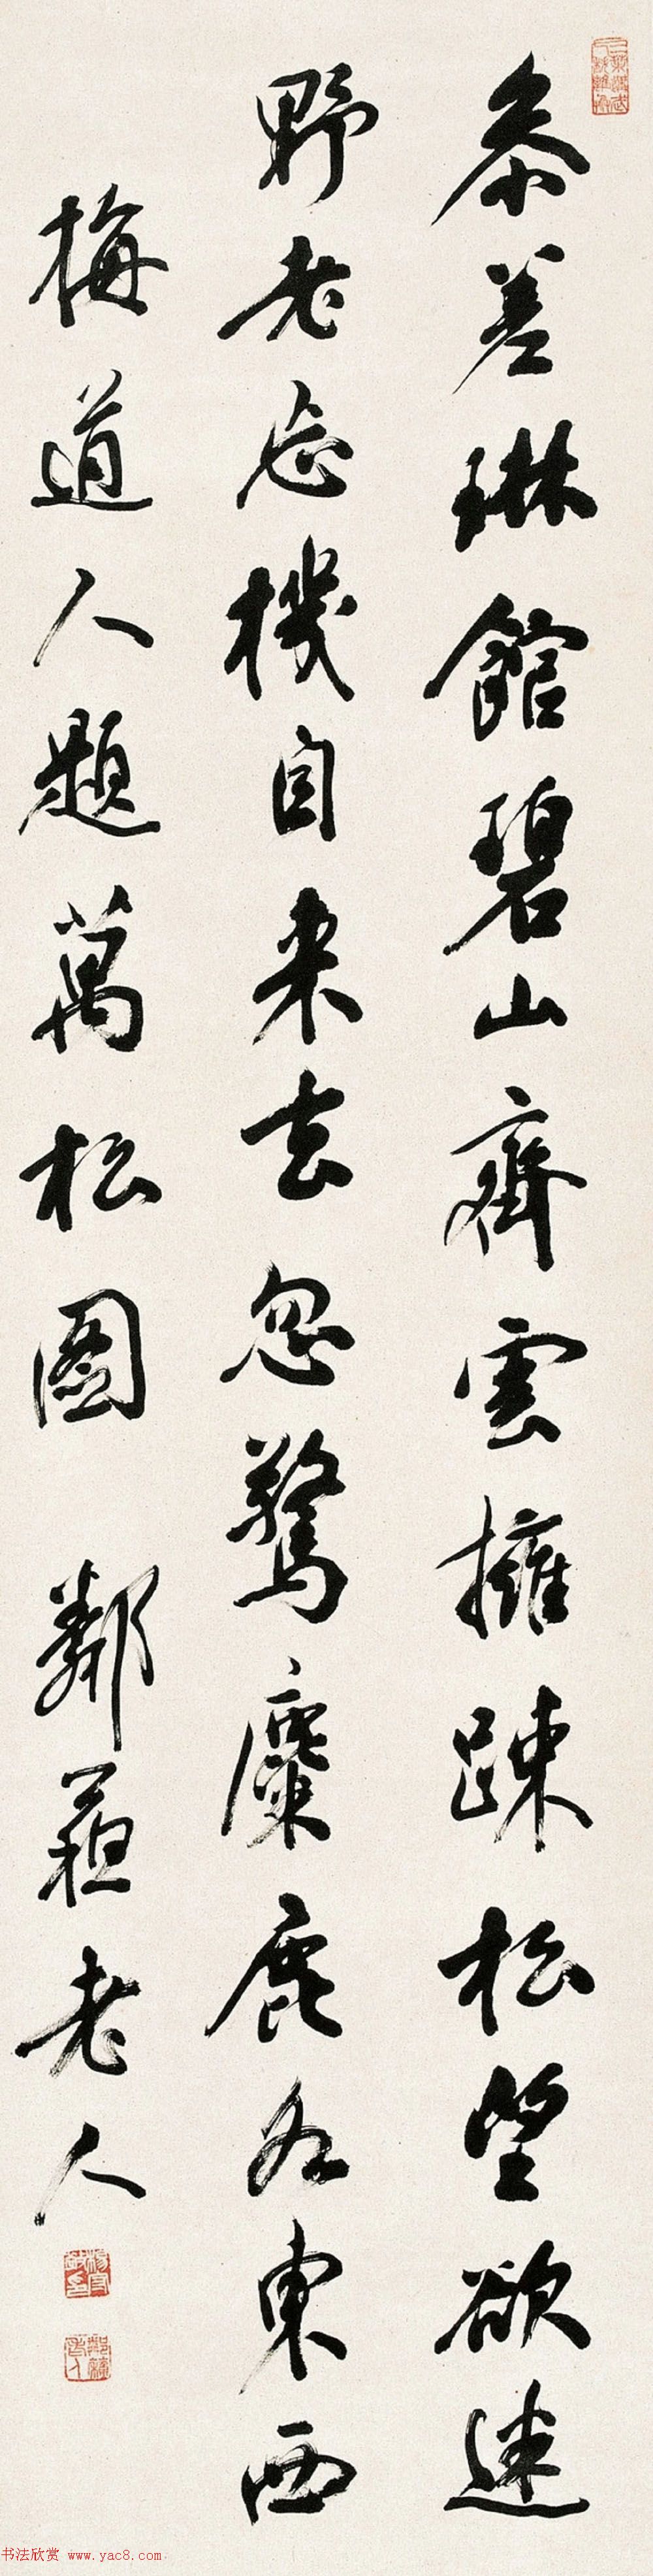 參差琳館碧山齊雲擁踈松望欲迷
野老忘機自来去忽驚麋鹿各東西
梅道人題萬松圖 鄰蘓老人
书法欣赏 www.yac8.com